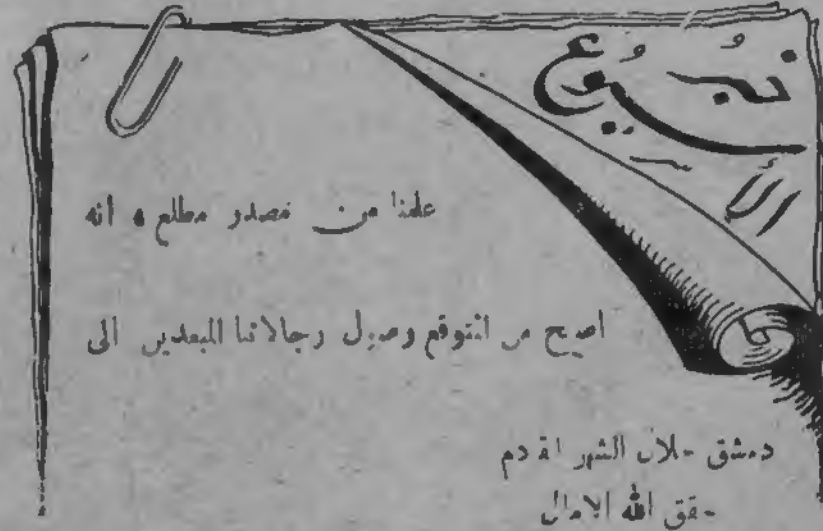 الأسبوع
علمنا من مصدر مطلع ، أنه
اصبح من المتوقع وصول رجالاتنا المبعدين الى
دمشق خلال الشهر القادم
حقق الله الامال